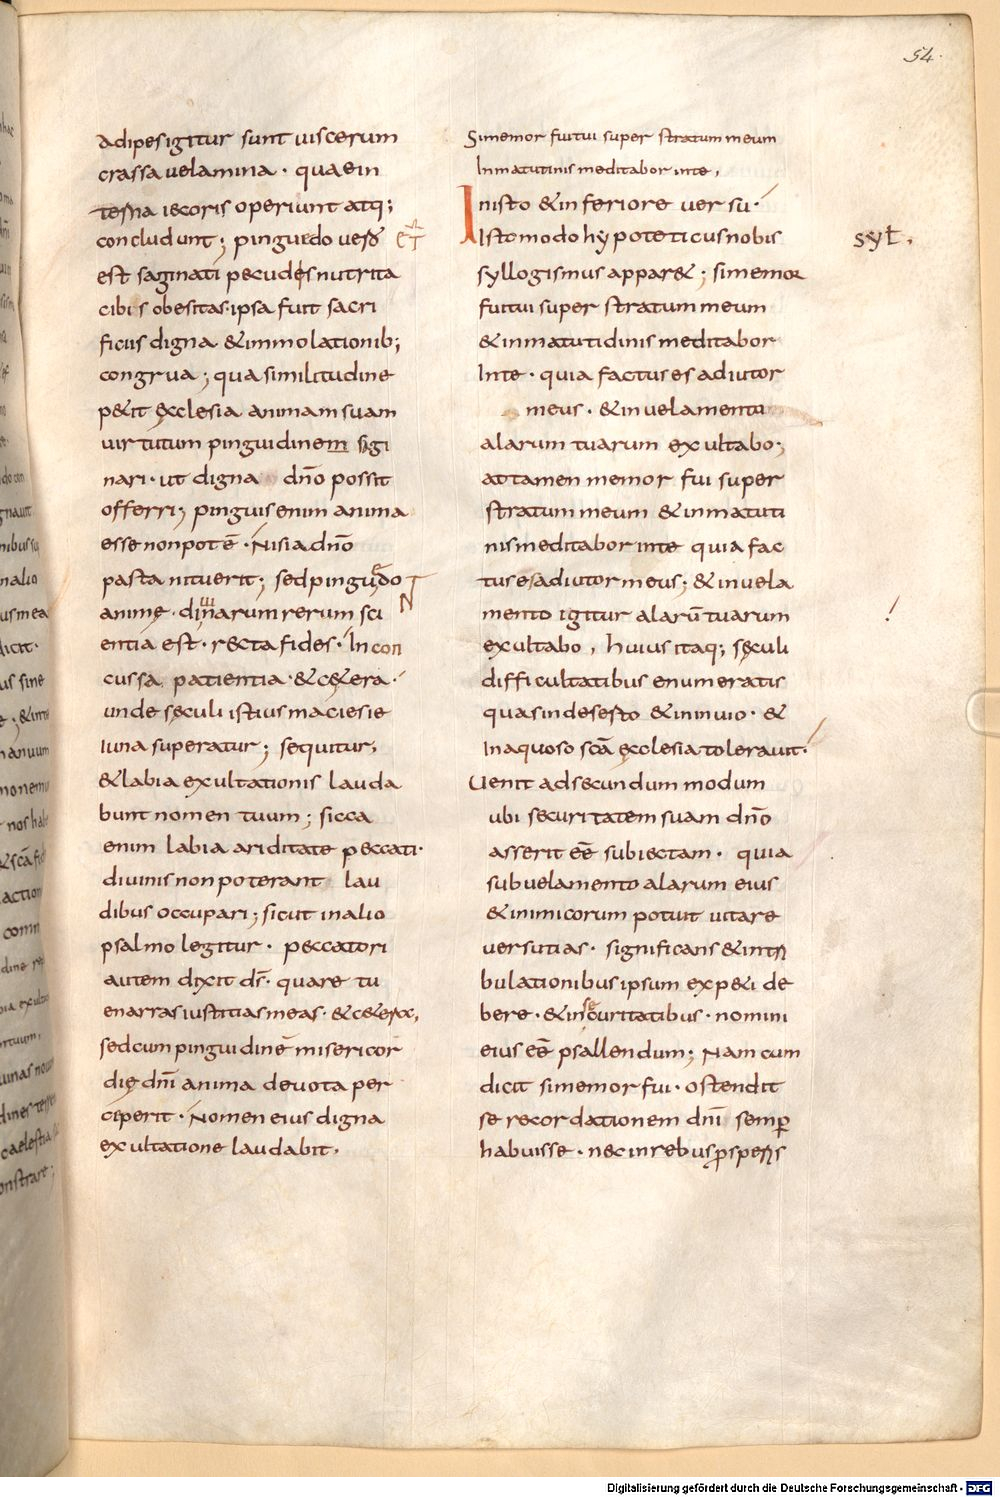 54.
Adipes igitur sunt uiscerum
crassa uelamina · quae in
terna iecoris operiunt atq;
concludunt; pinguedo uero
est saginati pecudis nutrita
cibis obesitas · ipsa fuit sacri
ficiis digna & immolationib;
congrua; qua similitudine
p&it ęcclesia animam suam
uirtutum pinguidinem sigi
nari · ut digna dn̄o possit
offerri; pinguis enim anima
esse non pot ē · Nisi a dn̄o
pasta nituerit; sed pinguedo
animę · diuinarum rerum sci
entia est · recta fides · Incon
cussa patientia · & cę&era ·
unde sęculi istius macies ie
iuna superatur; sequitur;
& labia exultationis lauda
bunt nomen tuum; sicca
enim labia ariditate peccati ·
diuinis non poterant lau
dibus occupari; sicut in alio
psalmo legitur · peccatori
autem dixit ds̄ · quare tu
enarras iustitias meas · & c&e
sed cum pinguidinē misericor
dię dnī anima deuota per
ceperit · Nomen eius digna
exultatione laudabit ·
Si memor fui tui super stratum meum
In matutinis meditabor in te,
In isto & inferiore uersu ·
Isto modo hypoteticus nobis
syt.
syllogismus appar&; si memor
fui tui super stratum meum
& in matutidinis meditabor
In te · quia factus es adiutor
meus · & in uelamento
alarum tuarum exultabo;
attamen memor fui super
stratum meum & in matuti
nis meditabor in te quia fac
tus es adiutor meus; & in uela
mento igitur alarū tuarum
exultabo, huius itaq; sęculi
difficultatibus enumeratis
quas in deserto & in inuio · &
In aquoso scā ęcclesia tolerauit ·
Uenit ad secundum modum
ubi securitatem suam dn̄o
asserit eē subiectam · quia
sub uelamento alarum eius
& inimicorum potuit uitare
uersutias · significans & in tri
bulationibus ipsum exp&i de
bere · & in securitatibus · nomini
eius eē psallendum; Nam cum
dicit si memor fui · ostendit
se recordationem dnī semp
habuisse · nec in rebus psperis
Digitalisierung gefördert durch die Deutsche Forschungsgemeinschaft - DFG